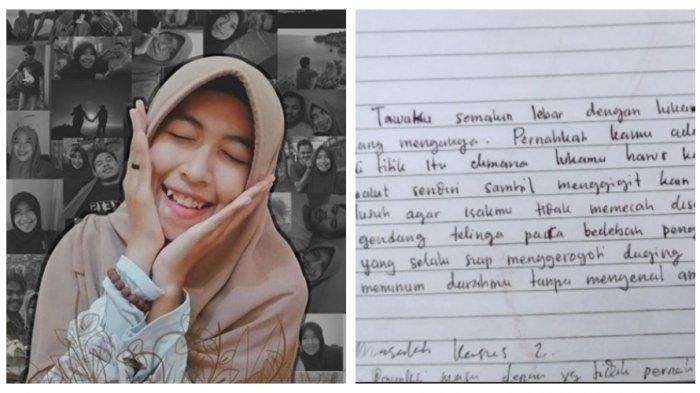 Tawaku semakin lebar dengan luka
ang menganga. Pernahkah kamu
di titik itu dimana lukamu harus
alut sendiri sambil menggigit kain
lusuh agar isakmu tidak memecah
gendang telinga para bedebah
yang selalu siap menggerogoti daging
meminum darahmu tanpa mengenal
Masalah kasus 2.
masa depan yg tidak pernah